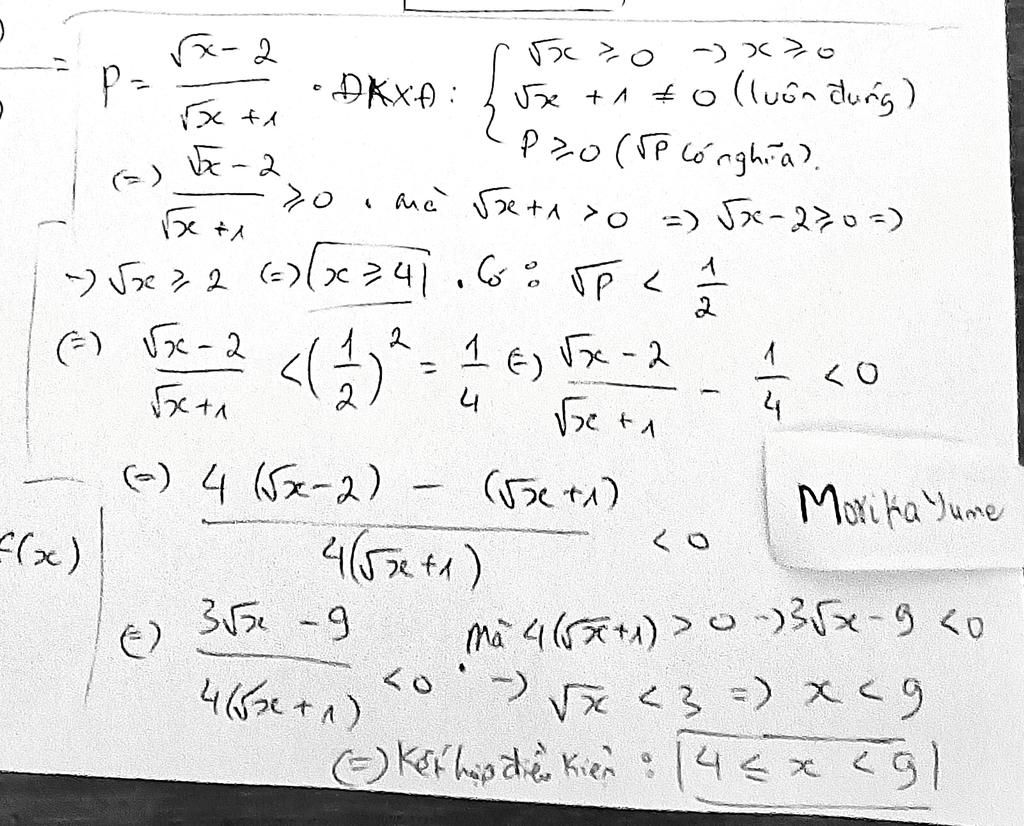 = P = (√x - 2)/(√x + 1) . ĐKXĐ: { √x ≥ 0 → x ≥ 0
√x + 1 ≠ 0 (luôn đúng)
P ≥ 0 (√P có nghĩa).
(=) (√x - 2)/(√x + 1) ≥ 0 . mà √x + 1 > 0 => √x - 2 ≥ 0 =>
→ √x ≥ 2 (=) x ≥ 4 . Có : √P < 1/2
(=) (√x - 2)/(√x + 1) < (1/2)² = 1/4 (=) (√x - 2)/(√x + 1) - 1/4 < 0
(=) (4(√x - 2) - (√x + 1))/(4(√x + 1)) < 0
MorikaYume
f(x)
(=) (3√x - 9)/(4(√x + 1)) < 0 . Mà 4(√x + 1) > 0 → 3√x - 9 < 0
→ √x < 3 => x < 9
(=) Kết hợp điều kiện : 4 ≤ x < 9